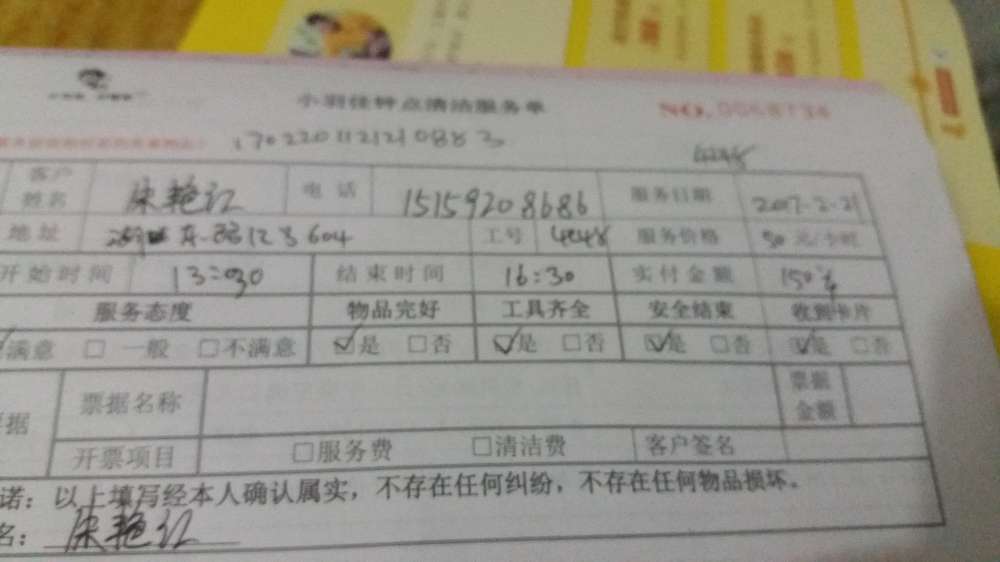 小羽佳钟点清洁服务单 NO.0068734
1702201121210883
4248
客户姓名 电话 15159208686 服务日期 2017-2-21
地址 604 工号 4248 服务价格 50元/小时
开始时间 13:30 结束时间 16:30 实付金额 150元
服务态度 物品完好 工具齐全 安全结束 收到卡片
满意 □ 一般 □不满意 ☑是 □否 ☑是 □否 ☑是 □否 ☑是 □否
据 票据名称 票据金额
开票项目 □服务费 □清洁费 客户签名
诺：以上填写经本人确认属实，不存在任何纠纷，不存在任何物品损坏。
名：